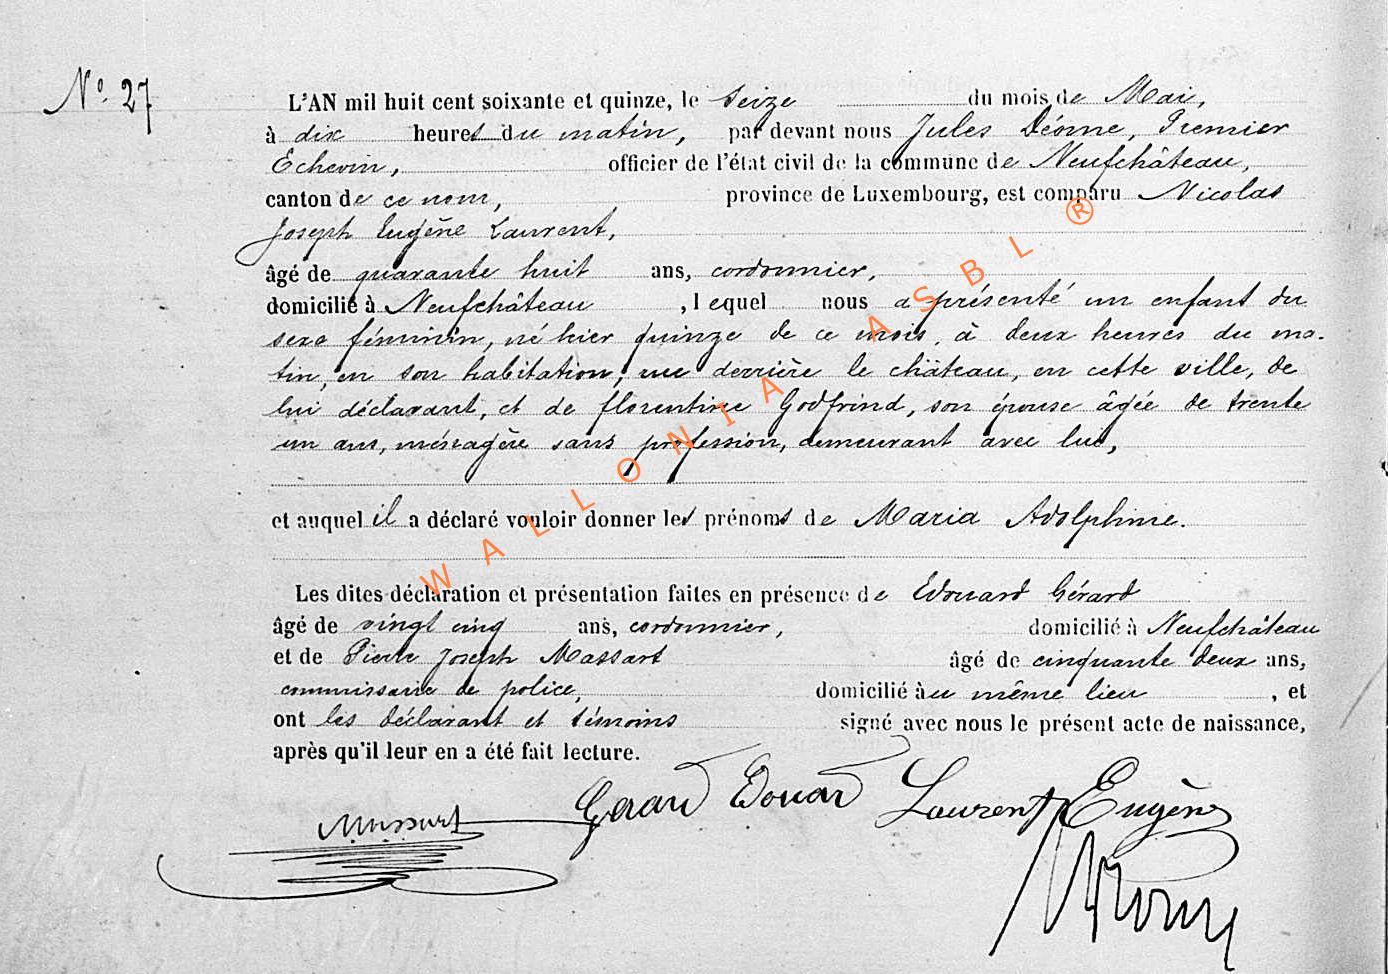 N° 27
L'AN mil huit cent soixante et quinze, le seize du mois de Mai,
à dix heures du matin, par devant nous Jules Déome, Premier
Echevin, officier de l'état civil de la commune de Neufchâteau,
canton de ce nom, province de Luxembourg, est comparu Nicolas
Joseph Eugène Laurent,
âgé de quarante huit ans, cordonnier,
domicilié à Neufchâteau, lequel nous a présenté un enfant du
sexe féminin, né hier quinze de ce mois, à deux heures du ma-
tin, en son habitation, rue derrière le château, en cette ville, de
lui déclarant, et de florentine Godfrind, son épouse âgée de trente
un ans, ménagère sans profession, demeurant avec lui,
et auquel il a déclaré vouloir donner les prénoms de Maria Adolphine.
Les dites déclaration et présentation faites en présence de Edouard Gérard
âgé de vingt cinq ans, cordonnier, domicilié à Neufchâteau
et de Pierre Joseph Massart âgé de cinquante deux ans,
commissaire de police, domicilié au même lieu, et
ont les déclarant et témoins signé avec nous le présent acte de naissance,
après qu'il leur en a été fait lecture.
Massart Gerard Edouard Laurent Eugène
WALLONIA ASBL ®